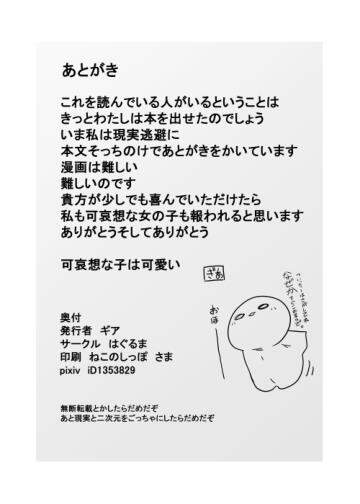 あとがき
これを読んでいる人がいるということは
きっとわたしは本を出せたのでしょう
いま私は現実逃避に
本文そっちのけであとがきをかいています
漫画は難しい
難しいのです
貴方が少しでも喜んでいただけたら
私も可哀想な女の子も報われると思います
ありがとうそしてありがとう
可哀想な子は可愛い
ぎあ
おは
なぜか
奥付
発行者 ギア
サークル はぐるま
印刷 ねこのしっぽ さま
pixiv iD1353829
無断転載とかしたらだめだぞ
あと現実と二次元をごっちゃにしたらだめだぞ